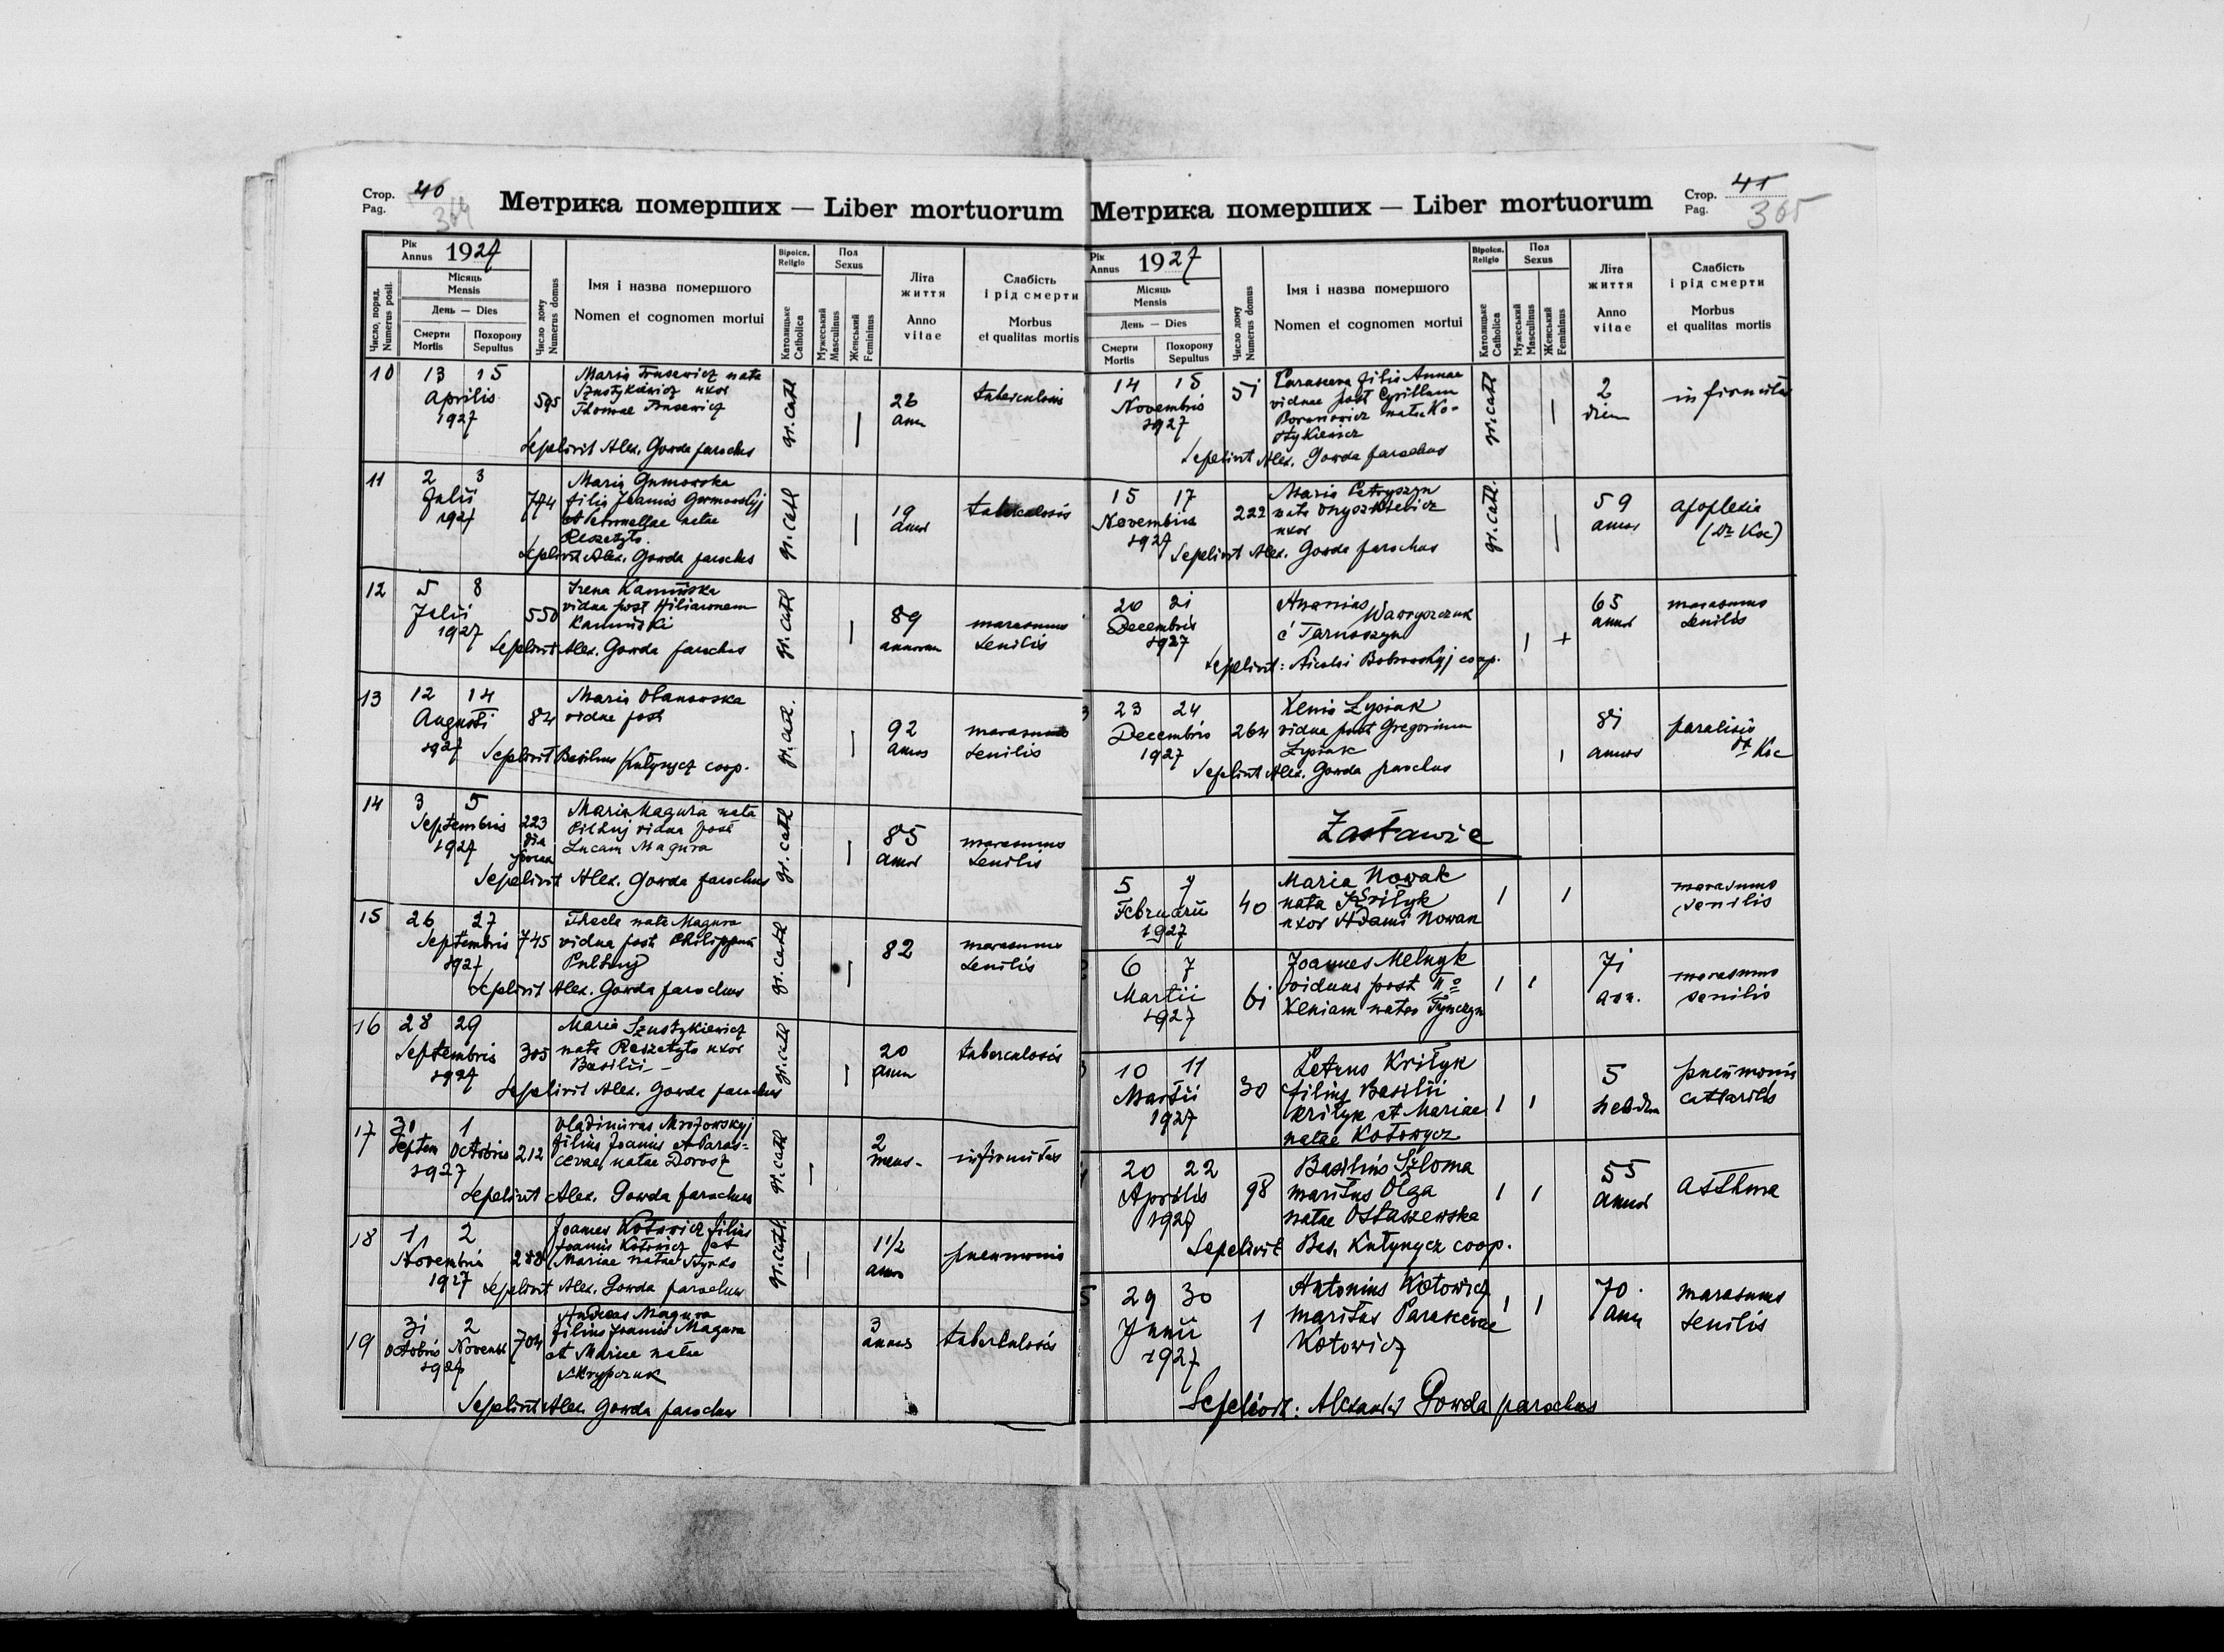 Стор. 40
Pag. 364
Метрика померших — Liber mortuorum
Рік
Annus 1927
Число поряд.
Numerus posit.
Місяць
Mensis
День — Dies
Смерти
Mortis
Похорону
Sepultus
Число дому
Numerus domus
Імя і назва помершого
Nomen et cognomen mortui
Віроісп.
Religio
Католицьке
Catholica
Пол
Sexus
Мужеський
Masculinus
Женський
Femininus
Літа
життя
Anno
vitae
Слабість
і рід смерти
Morbus
et qualitas mortis
10 13 15 Maria Trusewicz nata
Aprilis 595 Szustykiewicz uxor gr. catl 26 tuberculosis
1927 Thomae Trusewicz ann
Sepelivit Alex. Gowda parochus
11 2 3 Maria Gumowska
Julii 774 filia Joannis Gumowskyj gr. catl 19 tuberculosis
1927 et Petronellae natae annos
Reszetyło.
Sepelivit Alex. Gowda parochus
12 5 8 Irena Kamińska
Julii 550 vidua post Hiliaronem gr. catl 89 marasmus
1927 Kamiński annorum senilis
Sepelivit Alex. Gowda parochus
13 12 14 Maria
Augusti 84 vidua post gr. catl. 92 marasmus
1927 annos senilis
Sepelivit Basilius Kułynycz coop.
14 3 5 Maria Magura nata
Septembris 223 vidua post gr. catl 85 marasmus
1927 Lucam Magura annos senilis
Sepelivit Alex. Gowda parochus
15 26 27 Thecla nata Magura
Septembris 745 vidua post Philippum gr. catl 82 marasmus
1927 senilis
Sepelivit Alex. Gowda parochus
16 28 29 Maria Szustykiewicz
Septembris 305 nata Reszetyło uxor gr. catl 20 tuberculosis
1927 Basilii —
Sepelivit Alex. Gowda parochus
17 30 1 Vladimirus Mrozowskyj
Septem Octobris 212 filius Joannis et Paras= gr. catl 2 infirmitas
1927 cevae natae Dorosz mens.
Sepelivit Alex. Gowda parochus
18 1 2 Joannes Kotowicz filius
Novembris 288 Joannis Kotowicz et gr. catl. 1 1/2 pneumonia
1927 Mariae natae
Sepelivit Alex. Gowda parochus
19 31 2 Andreas Magura
Octobris Novemb 704 filius Joannis Magura 3 tuberkulosis
1927 et Mariae natae annos
Skrypczuk
Sepelivit Alex. Gowda parochus
Метрика померших — Liber mortuorum
Стор. 41
Pag. 365
Рік
Annus 1927
Місяць
Mensis
День — Dies
Смерти
Mortis
Похорону
Sepultus
Число дому
Numerus domus
Імя і назва помершого
Nomen et cognomen mortui
Віроісп.
Religio
Католицьке
Catholica
Пол
Sexus
Мужеський
Masculinus
Женський
Femininus
Літа
життя
Anno
vitae
Слабість
і рід смерти
Morbus
et qualitas mortis
14 15 51 Parasceva filia Annae
Novembris viduae post Cyrillum gr. catl 2 infirmitas
1927 natae Ko- dien
Sepelivit Alex. Gowda parochus
15 17 Maria Petryszyn
Novembris 222 nata Onyszkiewicz gr. catl. 59 apoplexia
1927 uxor annos (Dr Koc)
Sepelivit Alex. Gowda parochus
20 21 Ananias Wawryszczuk 65 marasmus
Decembris é Tarnoszyn annos senilis
1927
Sepelivit: Nicolai Bobrowskyj coop.
23 24 Xenia Łysiak
Decembris 264 vidua post Gregorium 81 paralisis
1927 Łysiak annos Dr Koc
Sepelivit Alex. Gowda parochus
Zastawie
5 7 Maria Nowak
Februarii 40 nata Kriłyk marasmus
1927 uxor Adami Nowak senilis
6 7 Joannes Melnyk
Martii 61 viduus post IIo 71 marasmus
1927 Xeniam natas Tymczyn ann. senilis
10 11 Petrus Kriłyk
Martii 30 filius Basilii 5 pneumonia
1927 Kriłyk et Mariae
natae Kotowycz
20 22 Basilius Szloma
Aprilis 98 maritus Olga 55 asthma
1927 natae Ostaszewska annos
Sepelivit Bas. Kułynycz coop.
29 30 Antonius Kotowicz
Junii 1 maritus Parascevae 70 marasmus
1927 Kotowicz ann senilis
Sepelivit: Alexander Gowda parochus